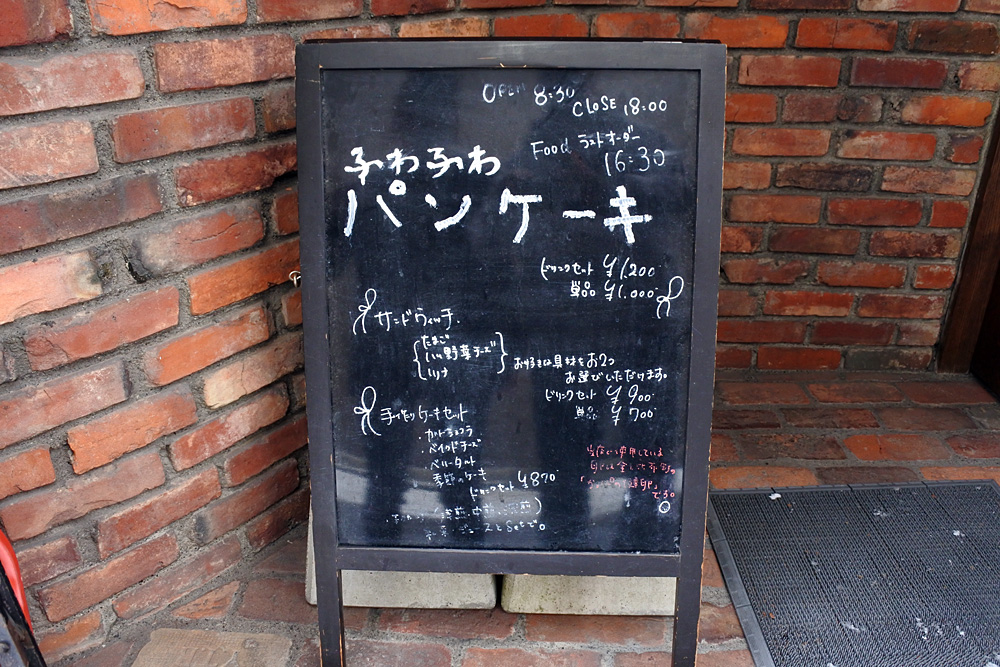 OPEN 8:30
CLOSE 18:00
Food ラストオーダー
16:30
ふわふわ
パンケーキ
ドリンクセット ¥1,200
単品 ¥1,000
サンドウィッチ.
たまご
ハム野菜チーズ
ツナ
お好きな具材をお2つ
お選びいただけます。
ドリンクセット ¥900
単品 ¥700
手作りケーキセット
・ガトーショコラ
・ベイクドチーズ
・ベリータルト
季節のケーキ
ドリンクセット ¥870
当店で使用している
です。